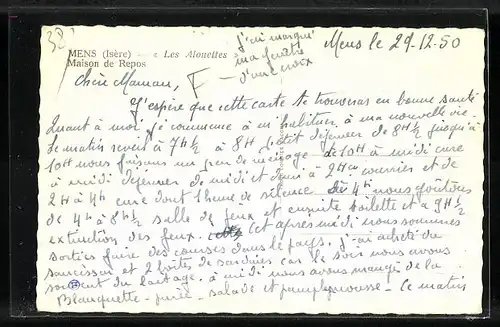 38
MENS (Isère) — « Les Alouettes
Maison de Repos
j'ai marqué
ma fenêtre
d'une croix
Mens le 29-12-50
Chère Maman,
J'espère que cette carte te trouveras en bonne santé
Quant à moi je commence à m'habituer à ma nouvelle vie.
le matin réveil à 7H½ à 8H petit déjeuner de 8H½ jusqu'à
10H nous faisons un peu de ménage de 10H à midi cure
à midi déjeuner de midi et demi à 2H courrier et de
2H à 4H cure dont 1 heure de silence à 4H nous goûtons
de 4H à 8H½ salle de jeux et ensuite toilette et à 9H½
extinction des feux. cet après midi nous sommes
sorties faire des courses dans le pays. j'ai acheté du
saucisson et 2 boîtes de sardines car le soir nous avons
souvent du laitage. à midi nous avons mangé de la
Blanquette - purée - salade et pamplemousse - Ce matin